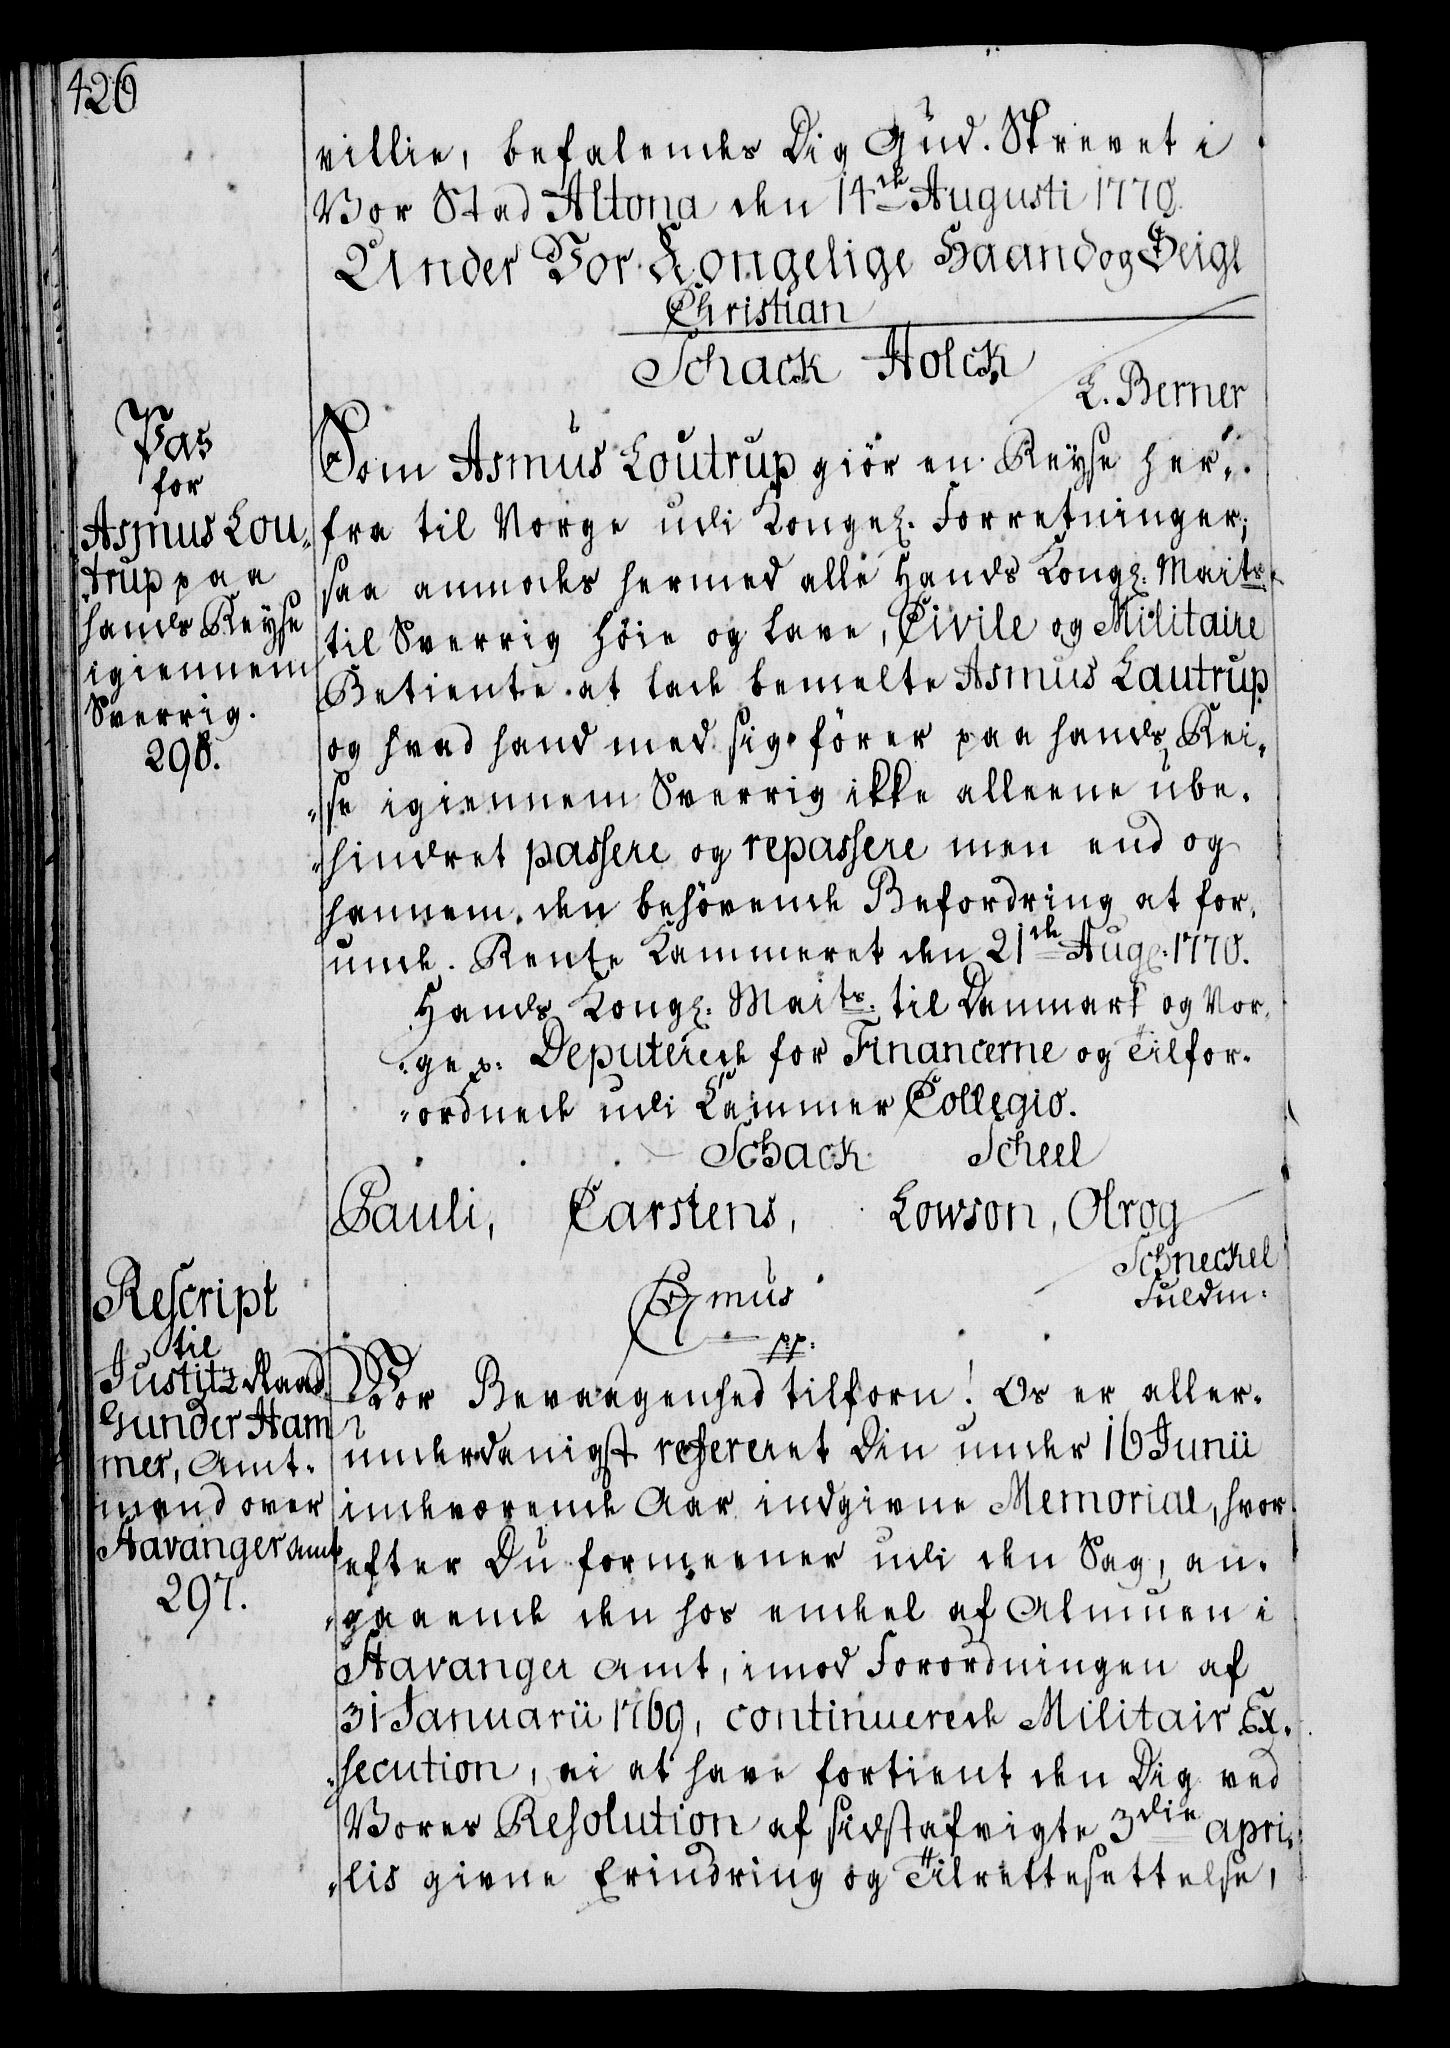 426
villie, befalendes Dig Gud. Skrevet i
Vor Stad Altona den 14de Augusti 1770.
Under Vor Kongelige Haand og Seigl
Christian
Schack Holck
L. Berner
Pas
for
Asmus Lou„
„trup paa
hands Reyse
igiennem
Sverrig.
296.
Som Asmus Loutrup giör en Reyse her„
fra til Norge udi Kongel. Forretninger;
saa anmodes hermed alle Hands Kongl: Maits
til Sverrig höie og lave, Civile og Militaire
Betiente at lade bemelte Asmus Lautrup
og hvad hand med sig förer paa hands Rei„
„se igiennem Sverrig ikke alleene ube„
„hindret passere og repassere men end og
hannem den behövende Befordring at for„
unde. Rente Kammeret den 21de Aug. 1770.
Hands Kongl: Maits. til Danmark og Nor„
„ge p: Deputerede for Financerne og Tilfor„
„ordnede udi Cammer Collegio.
Schack Scheel
Pauli, Carstens, Lowson, Olrog
Schneckel
Fuldm.
Rescript
til
Justitz Raad
Gunder Ham„
mer, Amt„
mand over
Stavanger Amt
297.
C7mus
pp:
Vor Bevaagenhed tilforn! Os er aller„
underdanigst refereret Din under 16 Junii
indeværende Aar indgivne Memorial, hvor
efter Du formeener udi den Sag, an„
„gaaende den hos endel af Almuen i
Stavanger Amt, imod Forordningen af
31 Januarii 1769, continuerede Militair Ex„
„secution, ei at have fortient den Dig ved
Vores Resolution af sidstafvigte 3die Apri„
„lis givne Erindring og Tilrettesettelse,